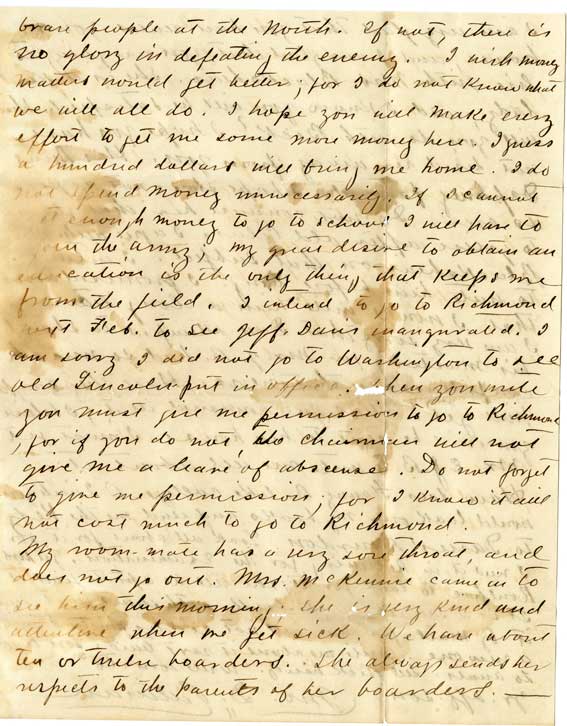 brave people at the North. If not, there is
no glory in defeating the enemy. I wish money
matters would get better, for I do not know what
we will all do. I hope you will make every
effort to get me some more money here. I guess
a hundred dollars will bring me home. I do
not spend money unnecessarily. If I cannot
get enough money to go to school I will have to
join the army, my great desire to obtain an
education is the only thing that keeps me
from the field. I intend to go to Richmond
next Feb. to see Jeff. Davis inaugurated. I
am sorry I did not go to Washington to see
old Lincoln put in office. When you write
you must give me permission to go to Richmond
, for if you do not, the chairman will not
give me a leave of abscense. Do not forget
to give me permission, for I know it will
not cost much to go to Richmond.
My room-mate has a very sore throat, and
does not go out. Mrs. McKennie came in to
see him this morning. She is very kind and
attentive when we get sick. We have about
ten or twelve boarders. She always sends her
respects to the parents of her boarders. —